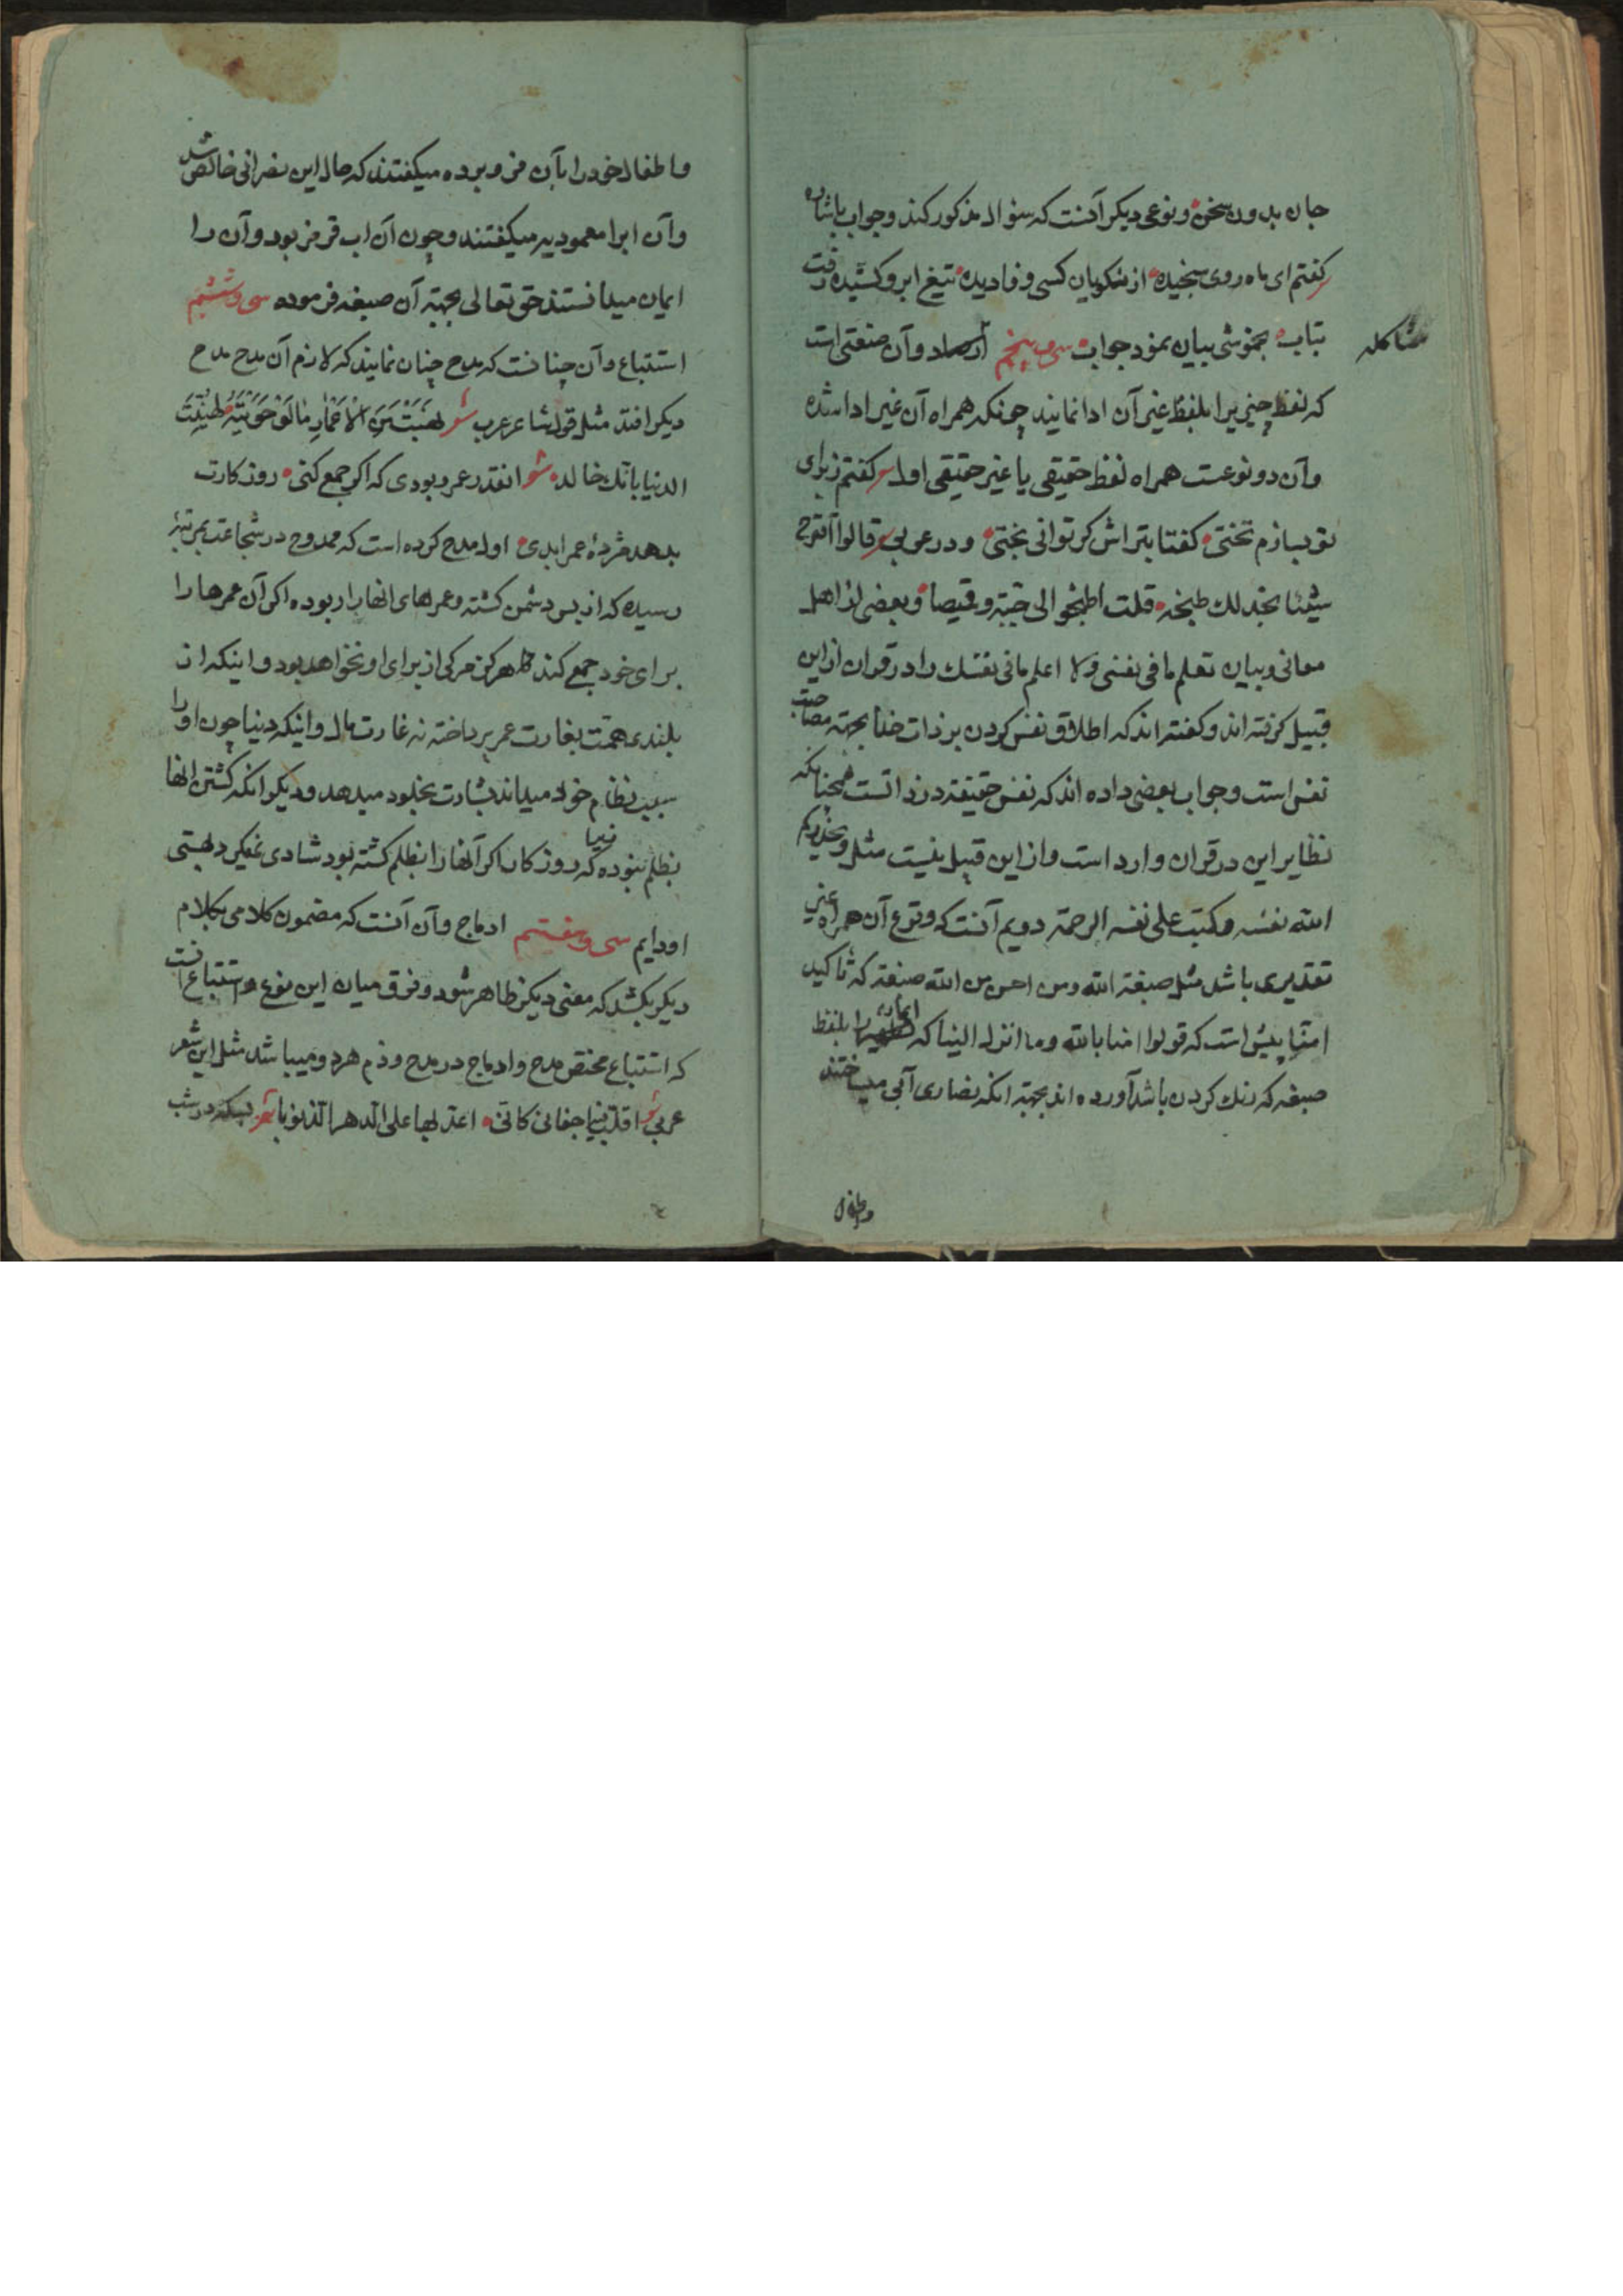 جان بدون سخن و نوعی دیکر آنست که سئوال مذکور کند و جواب باشاره
کفتم ای ماه روی سنجیده از نکویان کسی وفا دیده تیغ ابرو کشیده رفت
بتاب بخموشی بیان نمود جواب سی و پنجم ارصاد وآن صنعتی است
مشاکله
که لفظ چیزیرا بلفظ غیر آن ادا نمایند چونکه همراه آن غیر ادا شده
وآن دو نوعست همراه لفظ حقیقی یا غیر حقیقی اول کفتم ز برای
تو بسازم تختی کفتا بتراش کر توانی بختی و در عربی قالوا اقترح
شیئا نجد لك طبخه قلت اطبخوا لی جبة وقمیصا وبعضی از اهل
معانی وبیان تعلم ما فی نفسی ولا اعلم ما فی نفسك را در قران از این
قبیل کرفته اند و کفته اند که اطلاق نفس کردن بر ذات خدا بجهة مصاحبت
نفس است وجواب بعضی داده اند که نفس حقیقة در ذاتست همچنانکه
نظایر این در قران وارد است واز این قبیل نیست مثل ویحذرکم
الله نفسه وکتب علی نفسه الرحمة دویم آنست که وقوع آن همراه غیر
تقدیری باشد مثل صبغة الله ومن احسن من الله صبغة که تاکید
امنا پیش است که قولوا امنا بالله وما انزل الینا که ایمان را بلفظ
صبغه که رنك کردن باشد آورده اند بجهة انکه نصاری آبی میساختند
واطفال
واطفال خود را بآن فرو برده میکفتند که حال این نصرانی خالص شد
وآن ابرا معمودیه میکفتند وچون آن اب قرمز بود وآن را
ایمان میدانستند حق تعالی بجهة آن صبغه فرموده سی و ششم
استتباع وآن چنانست که مدح چنان نمایند که لازم آن مدح مدح
دیکر افتد مثل قول شاعر عرب شعر نهبت من الاعمار ما لو حویته لهنئت
الدنیا بانك خالد شعر انقدر عمر ربودی که اکر جمع کنی روزکارت
بدهد مژدهٔ عمر ابدی اول مدح کرده است که ممدوح در شجاعت بمرتبهٔ
رسیده که از بس دشمن کشته وعمرهای انها را ربوده اکر آن عمرها را
برای خود جمع کند هرکز مرکی از برای او نخواهد بود واینکه از
بلندی همت بغارت عمر پرداخته نه غارت مال واینکه دنیا چون او را
سبب نظام خود میداند بشارت بخلود میدهد ودیکر انکه کشتن انها
بظلم نبوده زیرا که روزکار اکر آنها را بظلم کشته بود شادی نمیکرد بهستی
او دایم سی و هفتم ادماج وآن آنست که مضمون کلامی بکلام
دیکر بکشد که معنی دیکر ظاهر شود وفرق میان این نوع و استتباع انست
که استتباع مختص مدح وادماج در مدح وذم هر دو میباشد مثل این شعر
عربی شعر اقلب فیه اجفانی کانی اعد بها علی الدهر الذنوبا شعر بسکه در شب